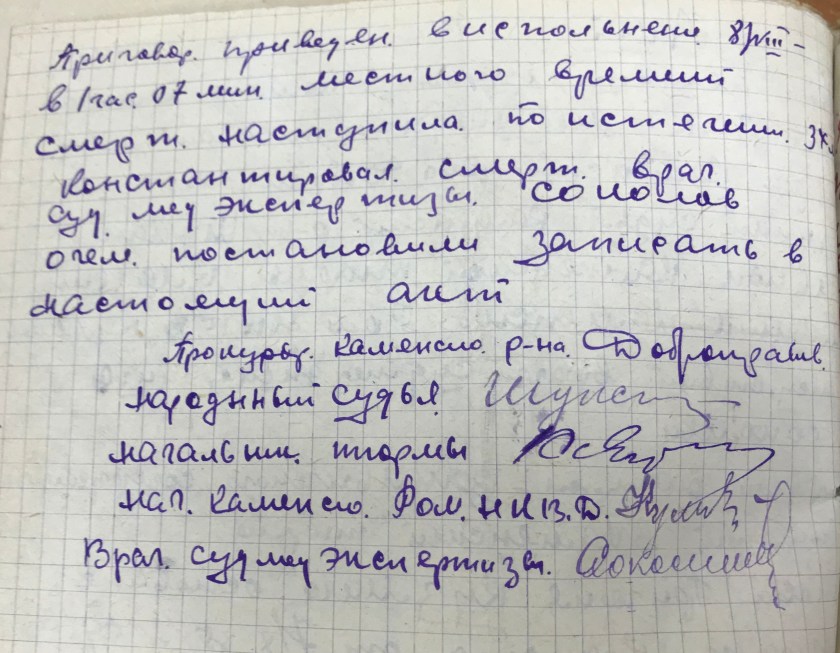 Приговор. приведен. в исполнение 8/VIII-
в 1 час. 07 мин. местного времний
смерт. наступила. по истечении. 3х
Константировал. смерт. врач.
суд. мед экспертизы. Соколов
о чем. постановили записать в
настоящий акт
Прокурор. Каменско. р-на. Добронравов.
народнный судья
начальник. тюрмы
нач. Каменско. Р.О.М. Н.К.В.Д.
Врач. суд мед экспертизы.